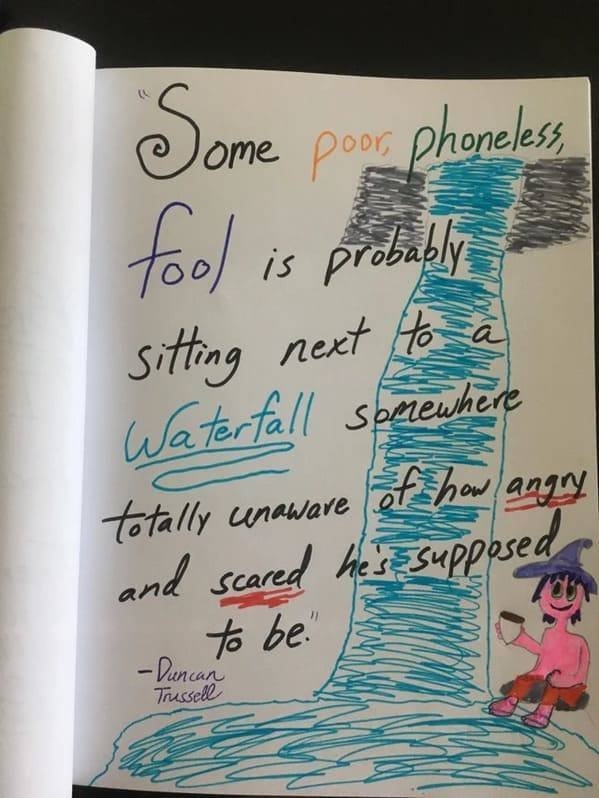 "Some poor, phoneless,
fool is probably
sitting next to a
Waterfall somewhere
totally unaware of how angry
and scared he's supposed
to be."
-Duncan
Trussell